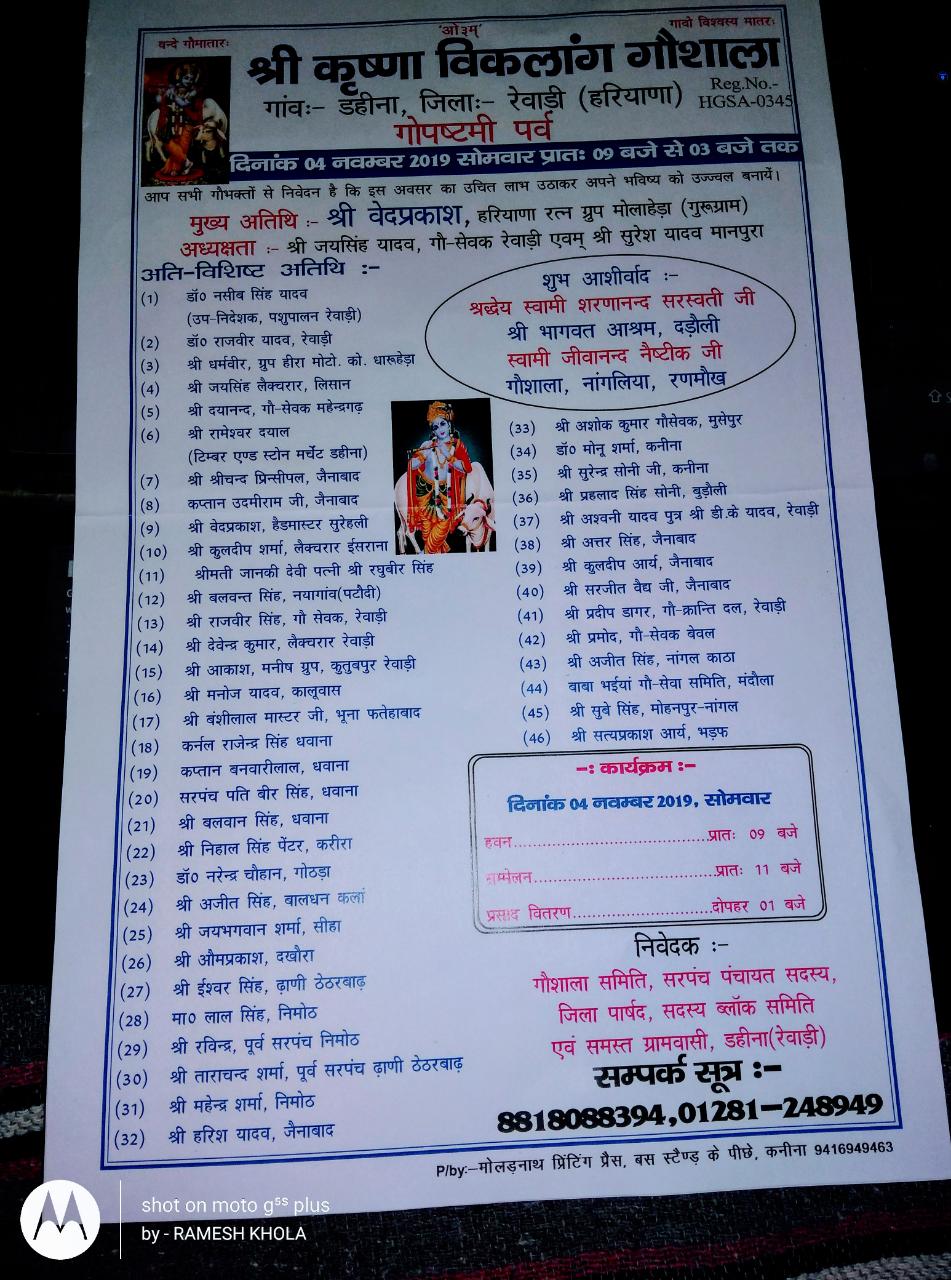 'ओ३म्'
वन्दे गौमातारः
गावो विश्वस्य मातरः
श्री कृष्णा विकलांग गौशाला
गांवः- डहीना, जिलाः- रेवाड़ी (हरियाणा)
Reg.No.-
HGSA-0345
गोपष्टमी पर्व
दिनांक 04 नवम्बर 2019 सोमवार प्रातः 09 बजे से 03 बजे तक
आप सभी गौभक्तों से निवेदन है कि इस अवसर का उचित लाभ उठाकर अपने भविष्य को उज्ज्वल बनायें।
मुख्य अतिथि :- श्री वेदप्रकाश, हरियाणा रत्न ग्रुप मोलाहेड़ा (गुरूग्राम)
अध्यक्षता :- श्री जयसिंह यादव, गौ-सेवक रेवाड़ी एवम् श्री सुरेश यादव मानपुरा
अति-विशिष्ट अतिथि :-
(1) डॉ० नसीब सिंह यादव
(उप-निदेशक, पशुपालन रेवाड़ी)
(2) डॉ० राजवीर यादव, रेवाड़ी
(3) श्री धर्मवीर, ग्रुप हीरा मोटो. को. धारूहेड़ा
(4) श्री जयसिंह लैक्चरार, लिसान
(5) श्री दयानन्द, गौ-सेवक महेन्द्रगढ़
(6) श्री रामेश्वर दयाल
(टिम्बर एण्ड स्टोन मर्चेंट डहीना)
(7) श्री श्रीचन्द प्रिन्सीपल, जैनाबाद
(8) कप्तान उदमीराम जी, जैनाबाद
(9) श्री वेदप्रकाश, हैडमास्टर सुरेहली
(10) श्री कुलदीप शर्मा, लैक्चरार ईसराना
(11) श्रीमती जानकी देवी पत्नी श्री रघुबीर सिंह
(12) श्री बलवन्त सिंह, नयागांव(पटौदी)
(13) श्री राजवीर सिंह, गौ सेवक, रेवाड़ी
(14) श्री देवेन्द्र कुमार, लैक्चरार रेवाड़ी
(15) श्री आकाश, मनीष ग्रुप, कुतुबपुर रेवाड़ी
(16) श्री मनोज यादव, कालूवास
(17) श्री बंशीलाल मास्टर जी, भूना फतेहाबाद
(18) कर्नल राजेन्द्र सिंह धवाना
(19) कप्तान बनवारीलाल, धवाना
(20) सरपंच पति बीर सिंह, धवाना
(21) श्री बलवान सिंह, धवाना
(22) श्री निहाल सिंह पेंटर, करीरा
(23) डॉ० नरेन्द्र चौहान, गोठड़ा
(24) श्री अजीत सिंह, बालधन कलां
(25) श्री जयभगवान शर्मा, सीहा
(26) श्री औमप्रकाश, दखौरा
(27) श्री ईश्वर सिंह, ढ़ाणी ठेठरबाढ़
(28) मा० लाल सिंह, निमोठ
(29) श्री रविन्द्र, पूर्व सरपंच निमोठ
(30) श्री ताराचन्द शर्मा, पूर्व सरपंच ढ़ाणी ठेठरबाढ़
(31) श्री महेन्द्र शर्मा, निमोठ
(32) श्री हरिश यादव, जैनाबाद
शुभ आशीर्वाद :-
श्रद्धेय स्वामी शरणानन्द सरस्वती जी
श्री भागवत आश्रम, दड़ौली
स्वामी जीवानन्द नैष्टीक जी
गौशाला, नांगलिया, रणमौख
(33) श्री अशोक कुमार गौसेवक, मुसेपुर
(34) डॉ० मोनू शर्मा, कनीना
(35) श्री सुरेन्द्र सोनी जी, कनीना
(36) श्री प्रहलाद सिंह सोनी, बुड़ौली
(37) श्री अश्वनी यादव पुत्र श्री डी.के यादव, रेवाड़ी
(38) श्री अत्तर सिंह, जैनाबाद
(39) श्री कुलदीप आर्य, जैनाबाद
(40) श्री सरजीत वैद्य जी, जैनाबाद
(41) श्री प्रदीप डागर, गौ-क्रान्ति दल, रेवाड़ी
(42) श्री प्रमोद, गौ-सेवक बेवल
(43) श्री अजीत सिंह, नांगल काठा
(44) बाबा भईयां गौ-सेवा समिति, मंदौला
(45) श्री सुबे सिंह, मोहनपुर-नांगल
(46) श्री सत्यप्रकाश आर्य, भड़फ
-: कार्यक्रम :-
दिनांक 04 नवम्बर 2019, सोमवार
हवन......................................प्रातः 09 बजे
सम्मेलन...................................प्रातः 11 बजे
प्रसाद वितरण...........................दोपहर 01 बजे
निवेदक :-
गौशाला समिति, सरपंच पंचायत सदस्य,
जिला पार्षद, सदस्य ब्लॉक समिति
एवं समस्त ग्रामवासी, डहीना(रेवाड़ी)
सम्पर्क सूत्र :-
8818088394,01281-248949
P/by:-मोलड़नाथ प्रिंटिंग प्रैस, बस स्टैण्ड के पीछे, कनीना 9416949463
shot on moto g⁵ˢ plus
by - RAMESH KHOLA